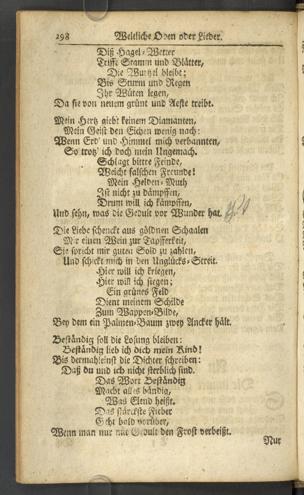 298 Weltliche Oden oder Lieder.
Diß Hagel-Wetter
Triffe Stamm und Blätter,
Die Wurtzel bleibt;
Bis Sturm und Regen
Ihr Wüten legen,
Da sie von neuem grünt und Aeste treibt.
Mein Hertz giebt keinem Diamanten,
Mein Geist den Eichen wenig nach:
Wenn Erd' und Himmel mich verbannten,
So trotz' ich doch mein Ungemach.
Schlagt bittre Feinde,
Weicht falschen Freunde!
Mein Helden-Muth
Ist nicht zu dämpffen,
Drum will ich kämpffen,
Und sehn, was die Gedult vor Wunder hat.
Die Liebe schenckt aus göldnen Schaalen
Mir einen Wein zur Tapfferkeit,
Sie spricht mir guten Sold zu zahlen,
Und schickt mich in den Unglücks-Streit.
Hier will ich kriegen,
Hier will ich siegen;
Ein grünes Feld
Dient meinem Schilde
Zum Wappen-Bilde,
Bey dem ein Palmen-Baum zwey Ancker hält.
Beständig soll die Losung bleiben:
Beständig lieb ich dich mein Kind!
Bis dermahleinst die Dichter schreiben:
Daß du und ich nicht sterblich sind.
Das Wort Beständig
Macht alles bändig,
Was Elend heißt.
Das stärckste Fieber
Geht bald vorüber,
Wenn man nur mit Gedult den Frost verbeißt.
Nur